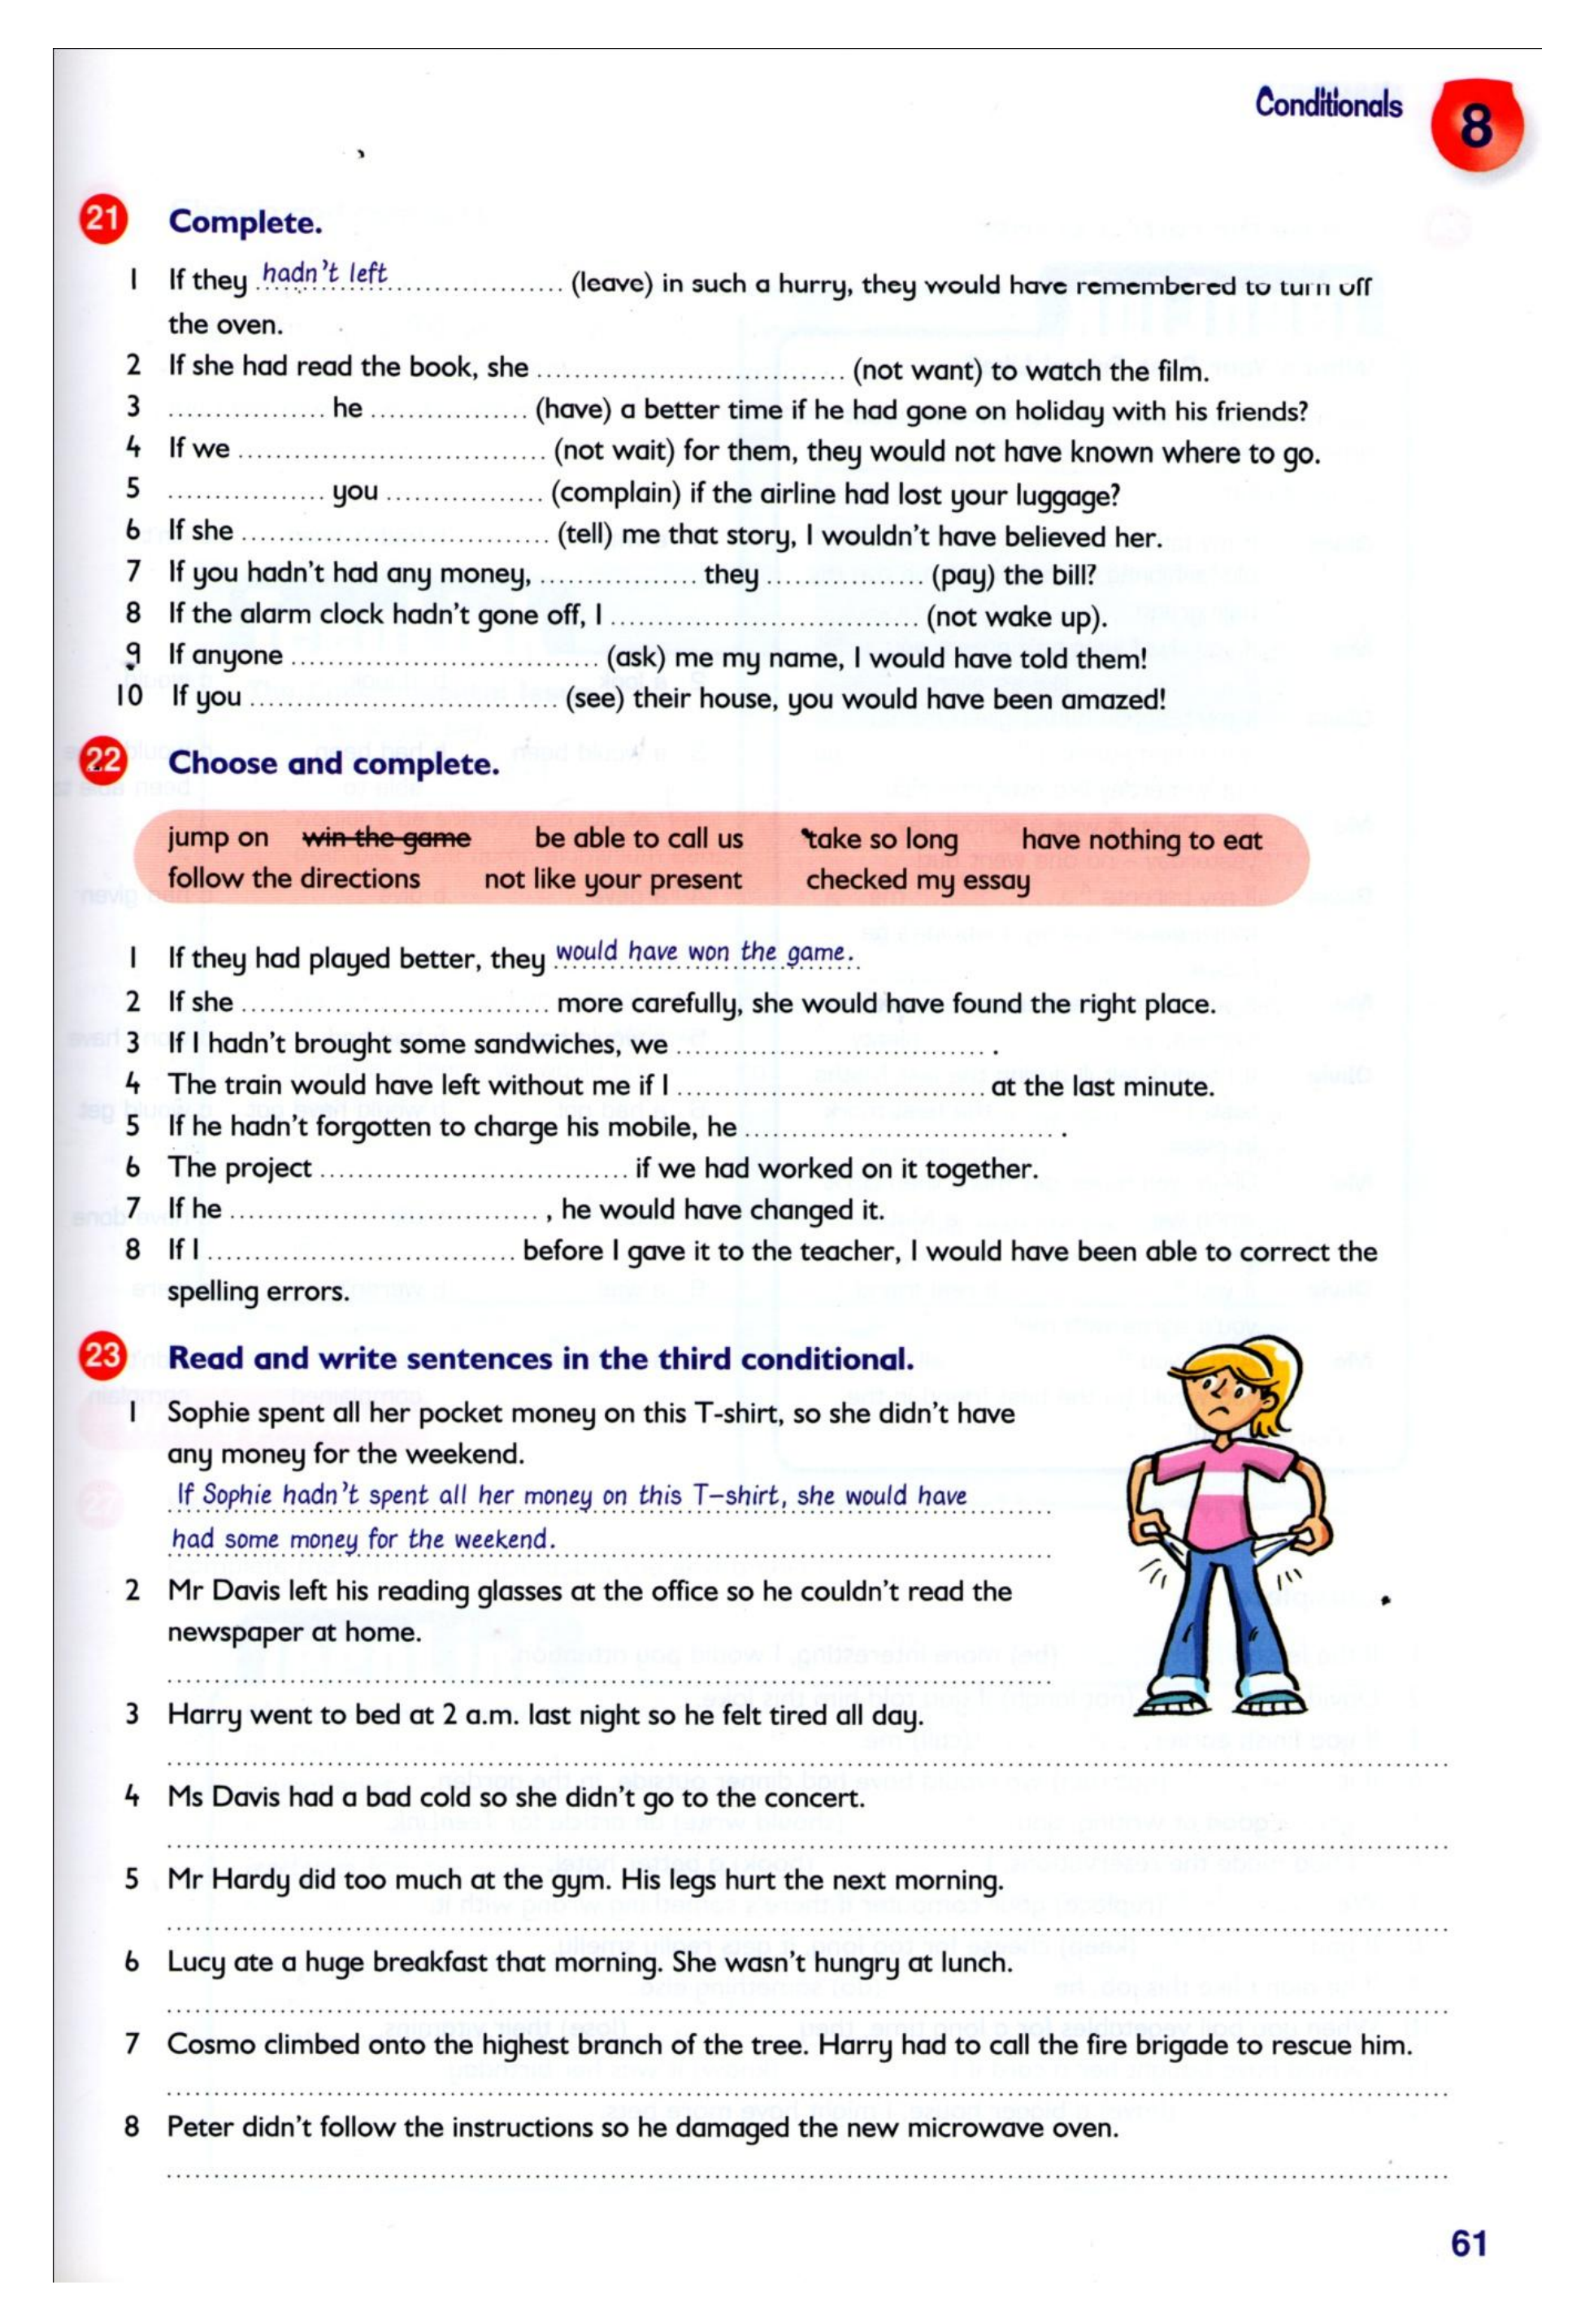 Conditionals 8
21 Complete.
1 If they hadn't left .................. (leave) in such a hurry, they would have remembered to turn off
the oven.
2 If she had read the book, she ................................. (not want) to watch the film.
3 ................. he ................. (have) a better time if he had gone on holiday with his friends?
4 If we ................................. (not wait) for them, they would not have known where to go.
5 ................. you ................. (complain) if the airline had lost your luggage?
6 If she ................................. (tell) me that story, I wouldn't have believed her.
7 If you hadn't had any money, ................. they ................. (pay) the bill?
8 If the alarm clock hadn't gone off, I ................................. (not wake up).
9 If anyone ................................. (ask) me my name, I would have told them!
10 If you ................................. (see) their house, you would have been amazed!
22 Choose and complete.
jump on win the game be able to call us take so long have nothing to eat
follow the directions not like your present checked my essay
1 If they had played better, they would have won the game.
2 If she ................................. more carefully, she would have found the right place.
3 If I hadn't brought some sandwiches, we ................................. .
4 The train would have left without me if I ................................. at the last minute.
5 If he hadn't forgotten to charge his mobile, he ................................. .
6 The project ................................. if we had worked on it together.
7 If he ................................. , he would have changed it.
8 If I ................................. before I gave it to the teacher, I would have been able to correct the
spelling errors.
23 Read and write sentences in the third conditional.
1 Sophie spent all her pocket money on this T-shirt, so she didn't have
any money for the weekend.
If Sophie hadn't spent all her money on this T-shirt, she would have
had some money for the weekend.
2 Mr Davis left his reading glasses at the office so he couldn't read the
newspaper at home.
3 Harry went to bed at 2 a.m. last night so he felt tired all day.
4 Ms Davis had a bad cold so she didn't go to the concert.
5 Mr Hardy did too much at the gym. His legs hurt the next morning.
6 Lucy ate a huge breakfast that morning. She wasn't hungry at lunch.
7 Cosmo climbed onto the highest branch of the tree. Harry had to call the fire brigade to rescue him.
8 Peter didn't follow the instructions so he damaged the new microwave oven.
61